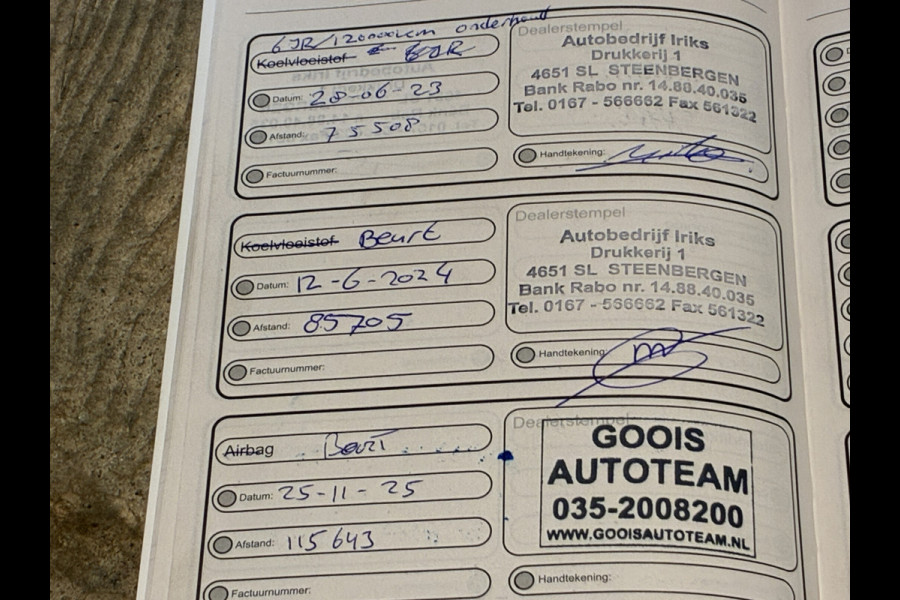 6 JR/120000km onderhoud
Koelvloeistof 6JR
Datum: 28-06-23
Afstand: 75508
Factuurnummer:
Dealerstempel
Autobedrijf Iriks
Drukkerij 1
4651 SL STEENBERGEN
Bank Rabo nr. 14.88.40.035
Tel. 0167 - 566662 Fax 561322
Handtekening:
Koelvloeistof Beurt
Datum: 12-6-2024
Afstand: 85705
Factuurnummer:
Dealerstempel
Autobedrijf Iriks
Drukkerij 1
4651 SL STEENBERGEN
Bank Rabo nr. 14.88.40.035
Tel. 0167 - 566662 Fax 561322
Handtekening:
Airbag Beurt
Datum: 25-11-25
Afstand: 115643
Factuurnummer:
Dealerstempel
GOOIS
AUTOTEAM
035-2008200
WWW.GOOISAUTOTEAM.NL
Handtekening: